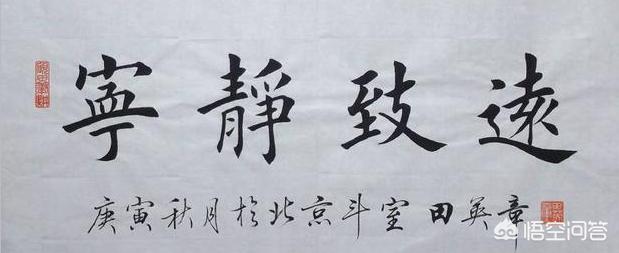 寧靜致遠
庚寅秋月於北京斗室 田英章
悟空问答